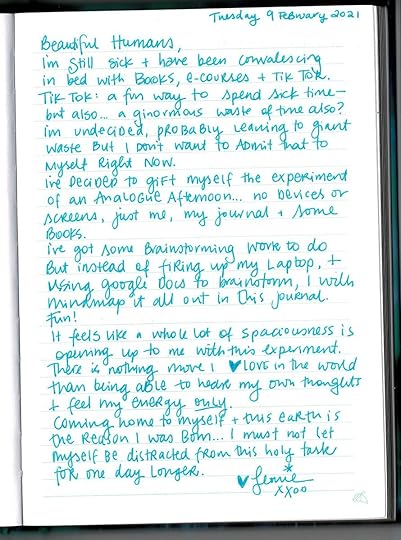 Tuesday 9 February 2021
Beautiful Humans,
I'm still sick + have been convalescing
in bed with Books, e-courses + Tik Tok.
Tik Tok: a fun way to spend sick time –
but also... a ginormous waste of time also?
I'm undecided, probably leaning to giant
waste But I don't want to admit that to
myself Right Now.
I've Decided to gift myself the experiment
of an Analogue Afternoon... no devices or
screens, just me, my journal + some
Books.
I've got some Brainstorming work to do
But instead of firing up my laptop, +
using google Docs to brainstorm, I will
mindmap it all out in this journal.
Fun!
It feels like a whole lot of spaciousness is
opening up to me with this experiment.
There is nothing more I ♥ Love in the world
than being able to hear my own thoughts
+ feel my energy only.
Coming home to myself + this earth is
the Reason I was Born... I must not let
myself be distracted from this holy task
for one day longer.
♥ Leonie
xxoo